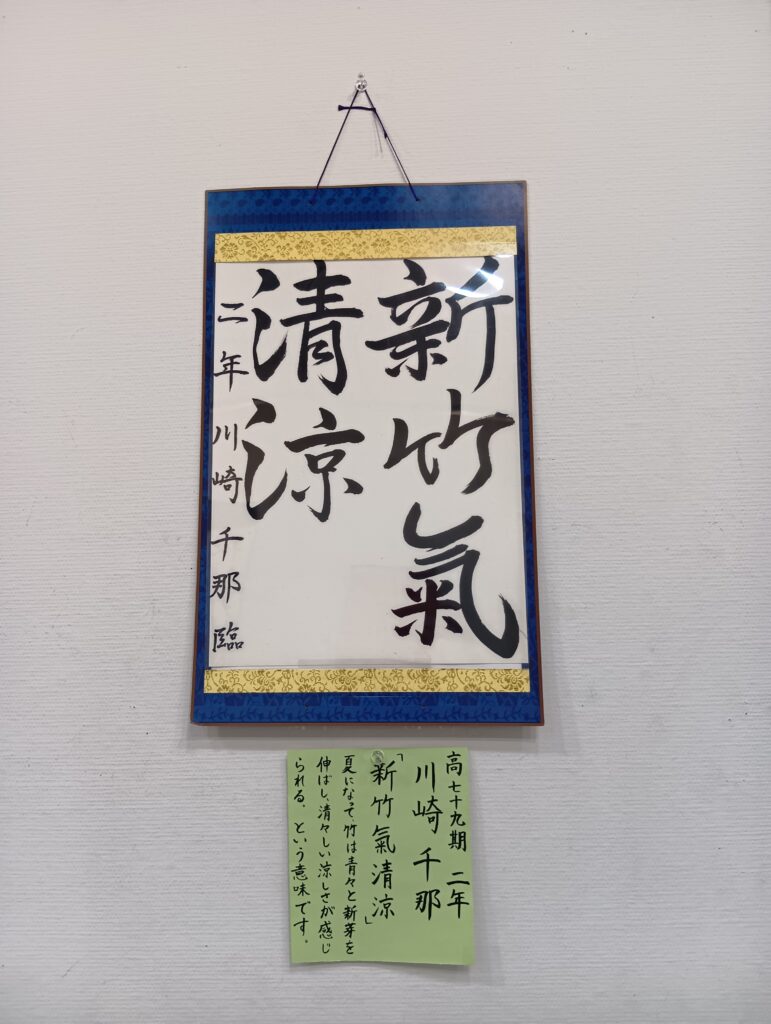 新竹氣
清涼
二年 川崎千那 臨
高七十九期 二年
川崎 千那
「新竹氣清涼」
夏になって、竹は青々と新芽を
伸ばし、清々しい涼しさが感じ
られる。という意味です。